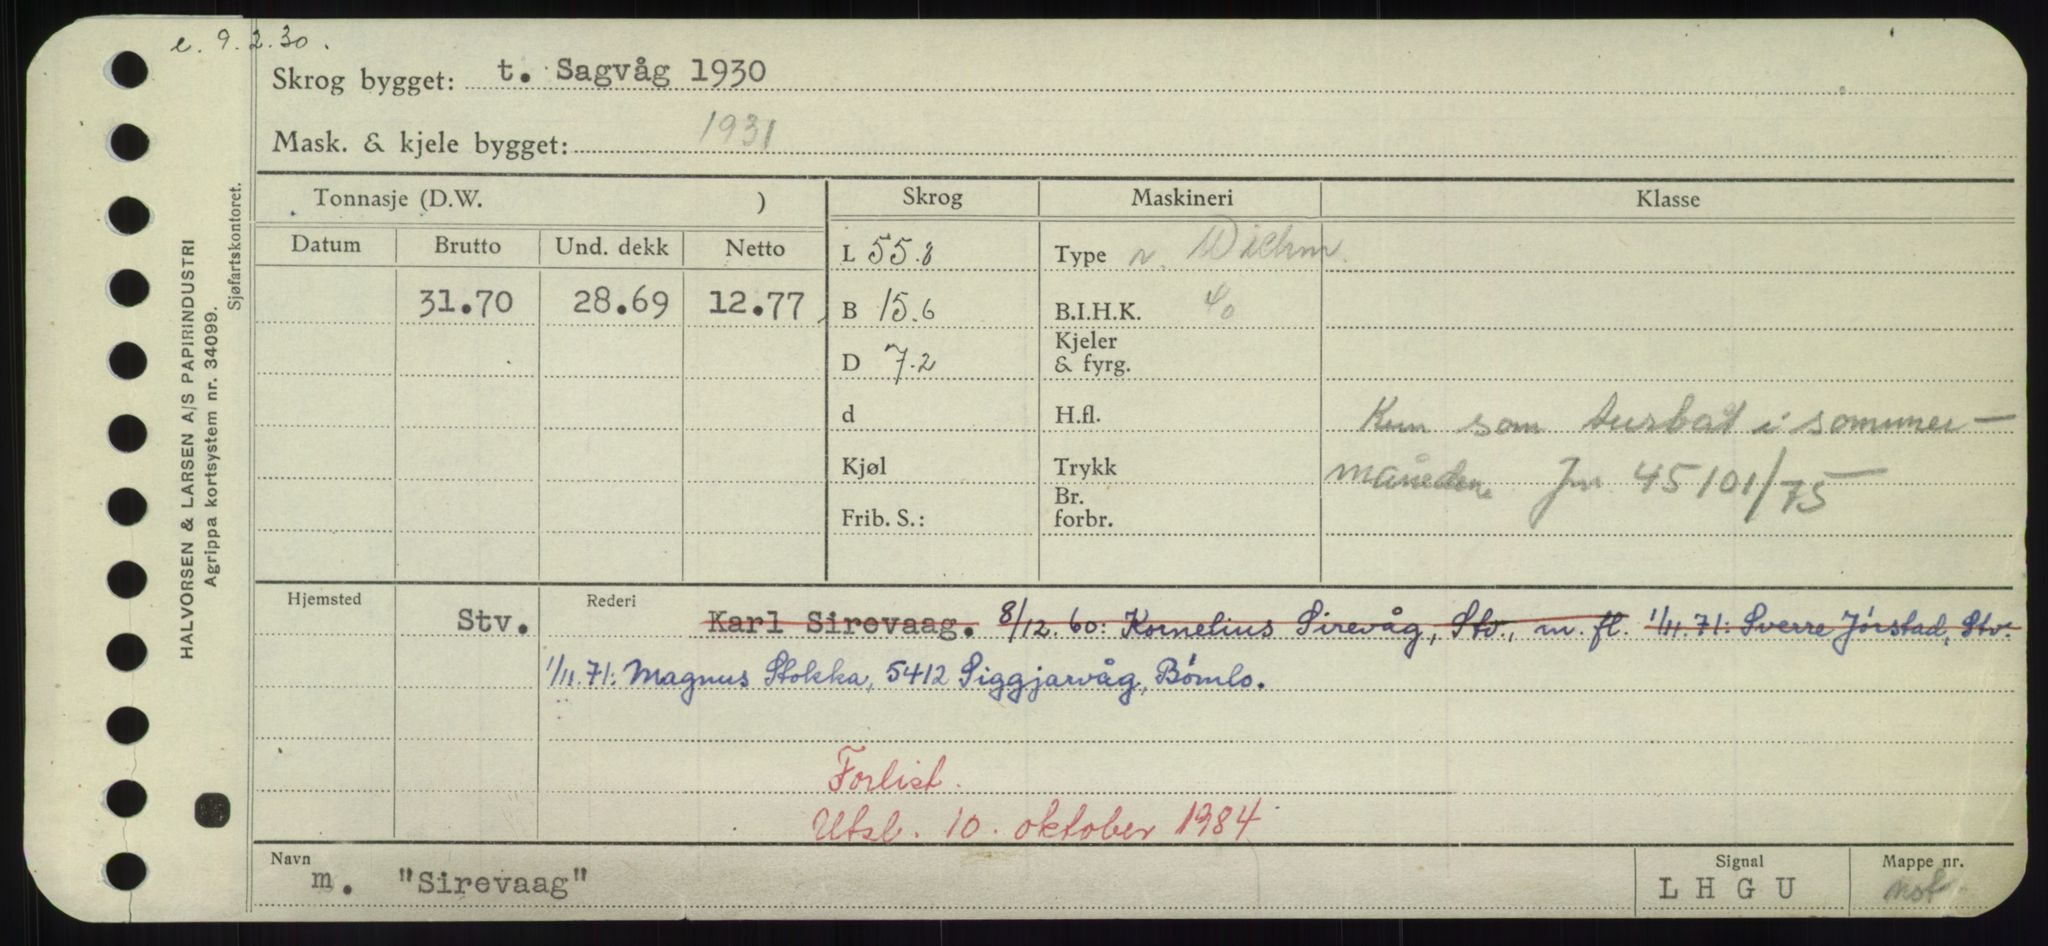 e. 9.2.30.
Skrog bygget: t. Sagvåg 1930
Mask. & kjele bygget: 1931
Tonnasje (D.W. ) Skrog Maskineri Klasse
Datum Brutto Und. dekk Netto
L 55.8 Type
31.70 28.69 12.77 B 15.6 B.I.H.K. 40
D 7.2 Kjeler & fyrg.
d H.fl. Kun som turbåt i sommer-
Kjøl Trykk månedene Jnr. 45101/75
Frib. S.: Br. forbr.
Hjemsted Stv. Rederi Karl Sirevaag. 8/12.60: Kornelius Sirevåg, Stv., m. fl. 1/11.71: Sverre Jórstad, Stv.
1/11.71: Magnus Stokka, 5412 Siggjarvåg, Bómlo.
Forlist.
Utsl. 10. oktober 1984
Navn Signal Mappe nr.
m. "Sirevaag" LHGU mot
HALVORSEN & LARSEN A/S PAPIRINDUSTRI
Agrippa kortsystem nr. 34099.
Sjøfartskontoret.